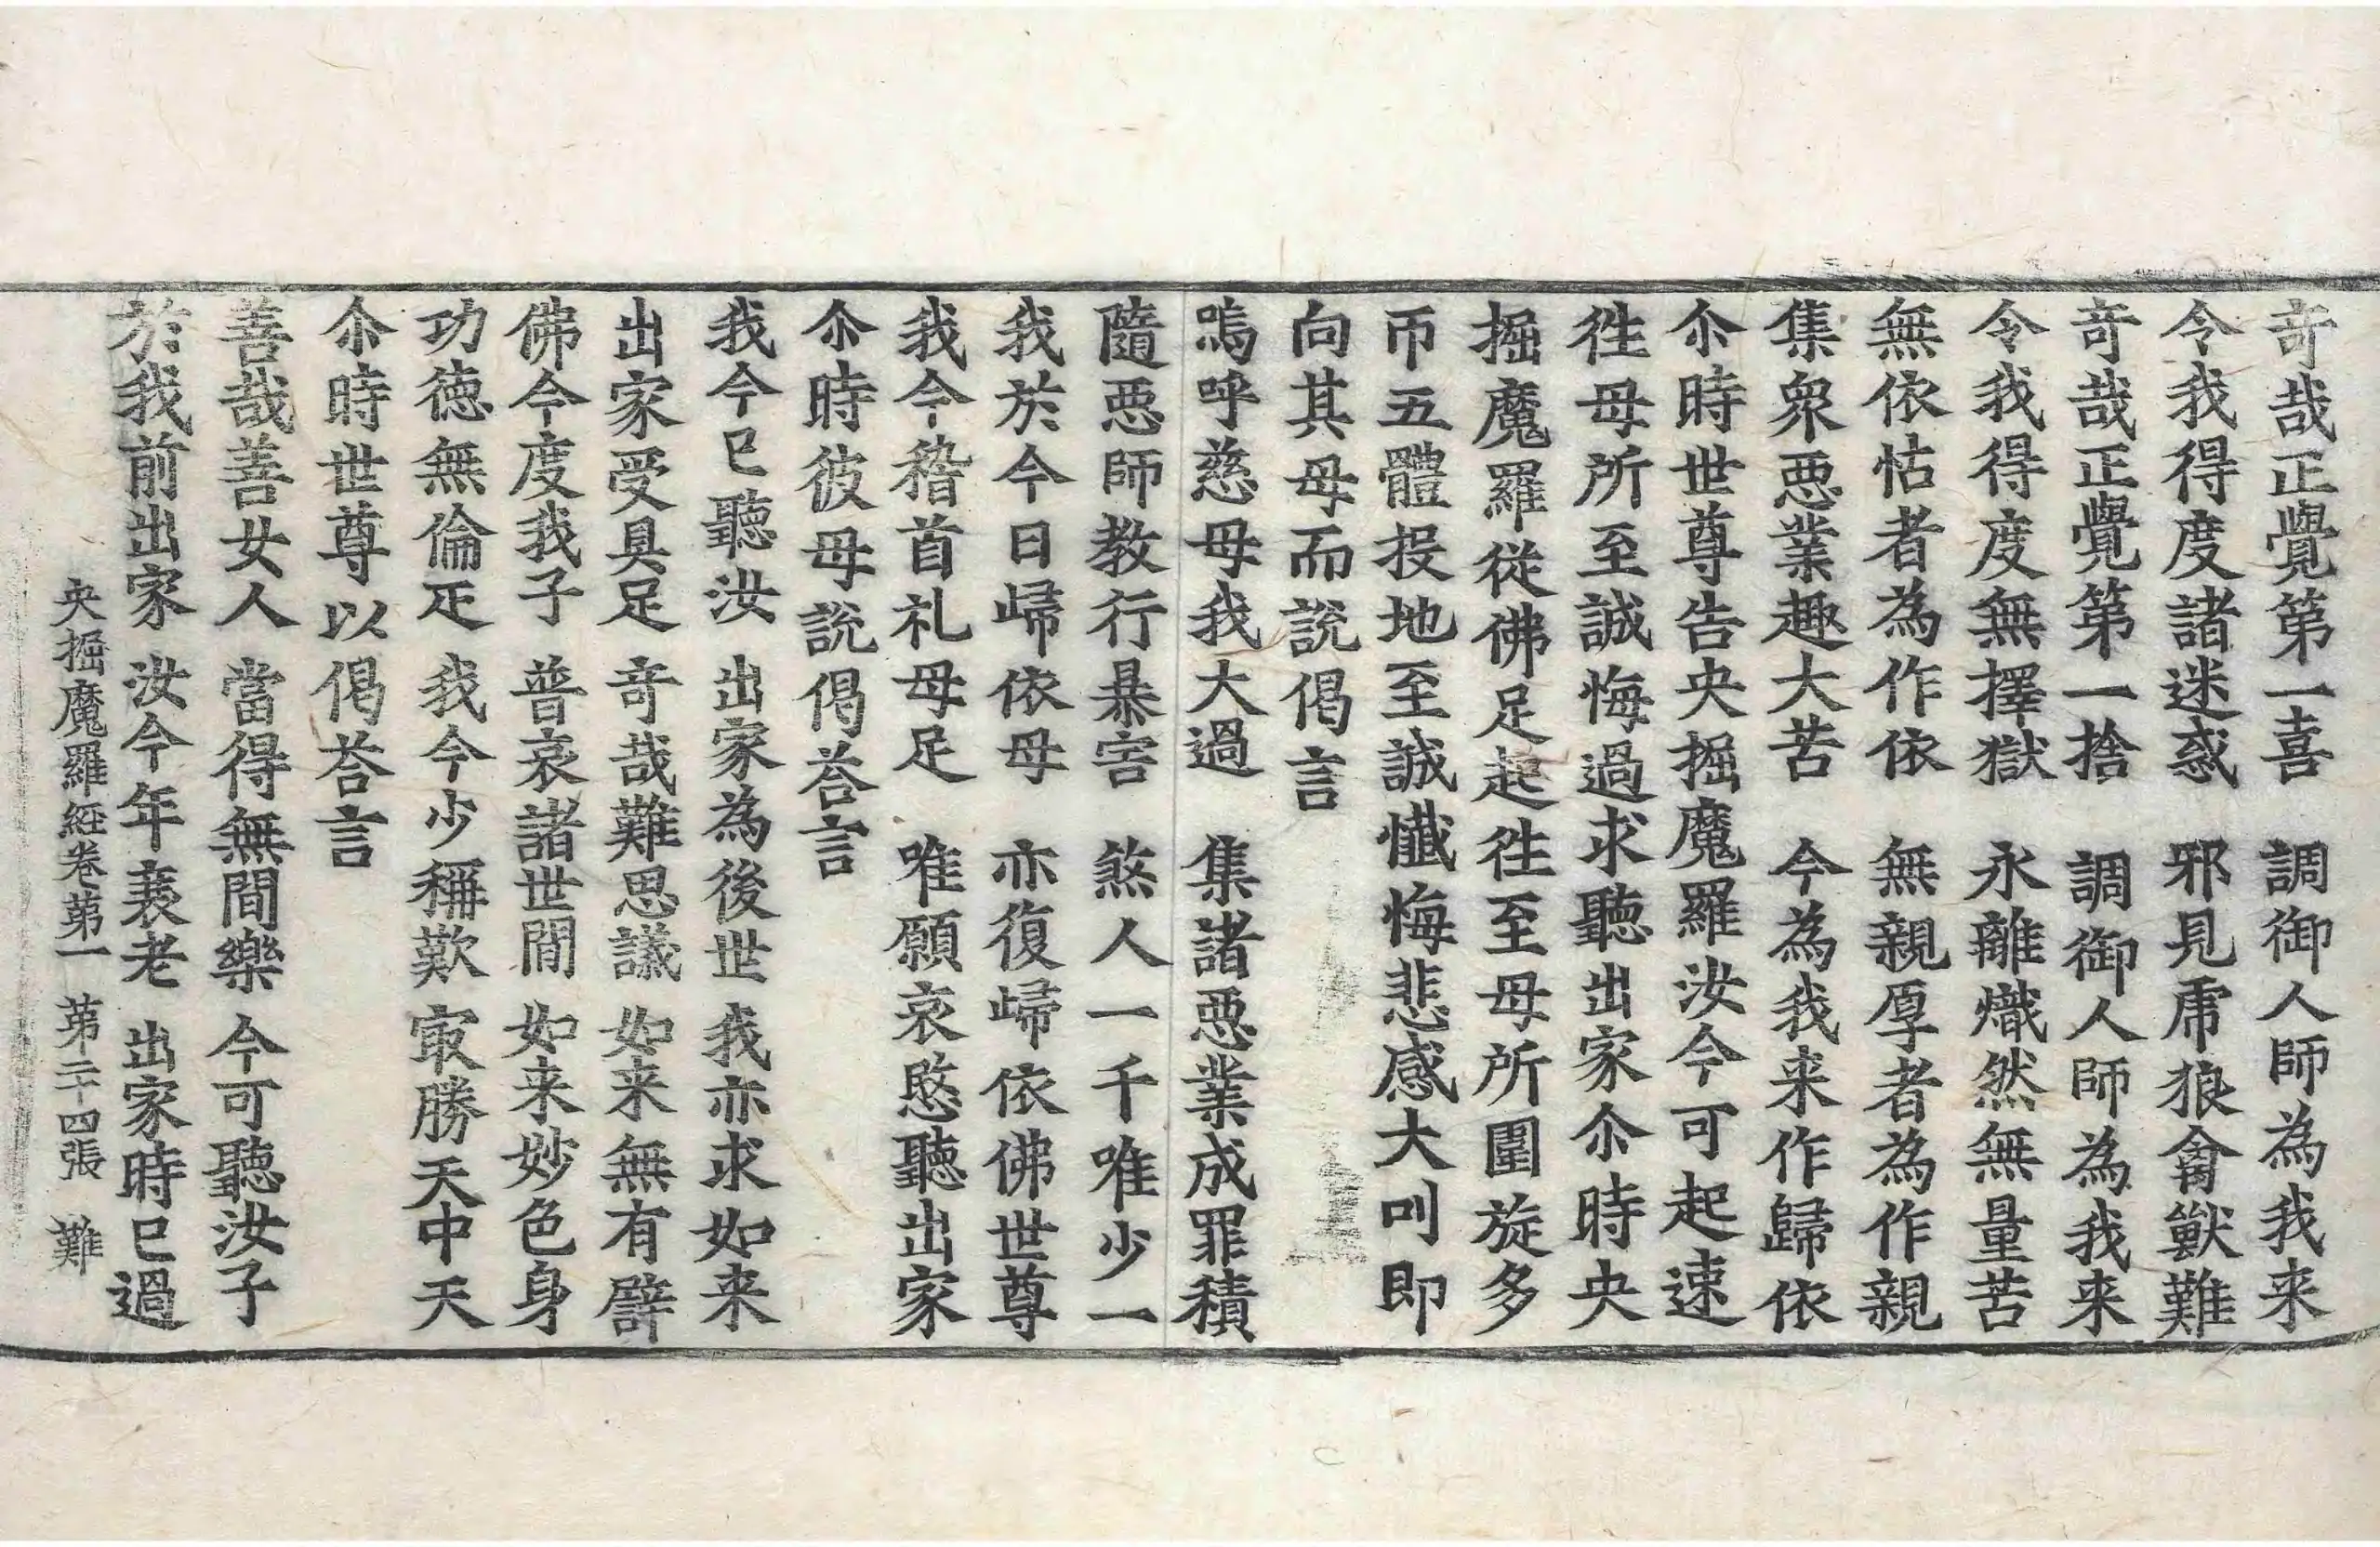 奇哉正覺第一喜　調御人師為我来
令我得度諸迷惑　邪見虎狼禽獸難
奇哉正覺第一捨　調御人師為我来
令我得度無擇獄　永離熾然無量苦
無依怙者為作依　無親厚者為作親
集衆惡業趣大苦　今為我来作歸依
尒時世尊告央掘魔羅汝今可起速
徃母所至誠悔過求聽出家尒時央
掘魔羅從佛足起徃至母所圍旋多
帀五體投地至誠懺悔悲感大叫即
向其母而說偈言
嗚呼慈母我大過　集諸惡業成罪積
隨惡師教行暴害　煞人一千唯少一
我於今日歸依母　亦復歸依佛世尊
我今稽首礼母足　唯願哀愍聽出家
尒時彼母說偈荅言
我今已聽汝　出家為後世　我亦求如来
出家受具足　奇哉難思議　如来無有譬
佛今度我子　普哀諸世間　如来妙色身
功徳無倫疋　我今少稱歎　㝡勝天中天
尒時世尊以偈荅言
善哉善女人　當得無間樂　今可聽汝子
於我前出家　汝今年衰老　出家時已過
央掘魔羅経卷第一　第二十四張　難